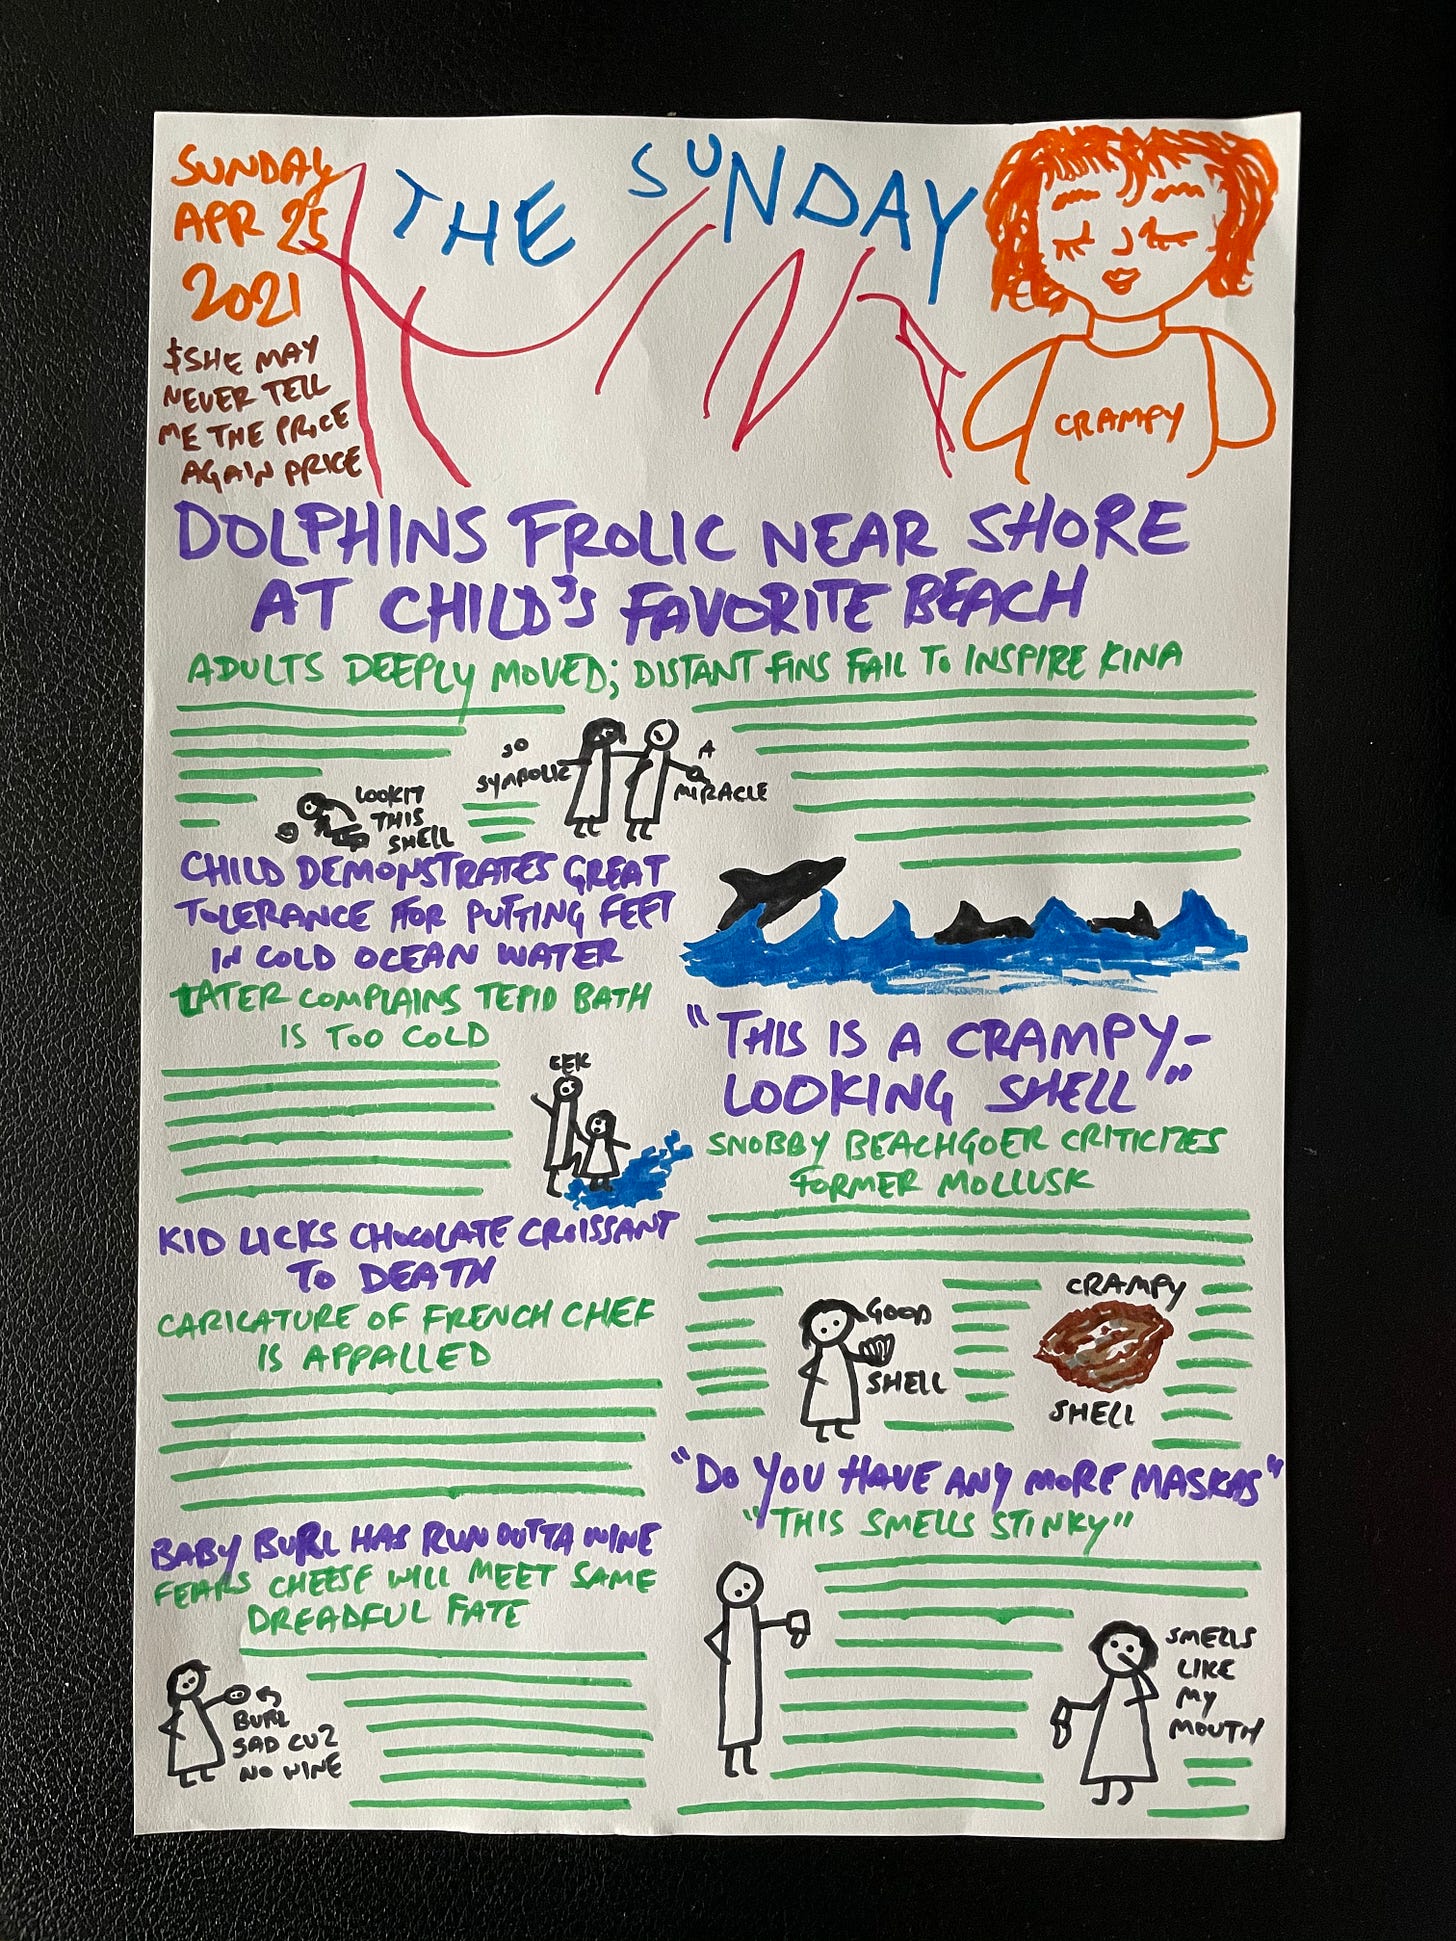 SUNDAY
APR 25
2021
$SHE MAY
NEVER TELL
ME THE PRICE
AGAIN PRICE
THE SUNDAY
KINA
CRAMPY
DOLPHINS FROLIC NEAR SHORE
AT CHILD'S FAVORITE BEACH
ADULTS DEEPLY MOVED; DISTANT FINS FAIL TO INSPIRE KINA
LOOKIT
THIS
SHELL
SO
SYMBOLIC
A
MIRACLE
CHILD DEMONSTRATES GREAT
TOLERANCE FOR PUTTING FEET
IN COLD OCEAN WATER
LATER COMPLAINS TEPID BATH
IS TOO COLD
EEK
KID LICKS CHOCOLATE CROISSANT
TO DEATH
CARICATURE OF FRENCH CHEF
IS APPALLED
BABY BURL HAS RUN OUTTA WINE
FEARS CHEESE WILL MEET SAME
DREADFUL FATE
BURL
SAD CUZ
NO WINE
"THIS IS A CRAMPY-
LOOKING SHELL"
SNOBBY BEACHGOER CRITICIZES
FORMER MOLLUSK
GOOD
SHELL
CRAMPY
SHELL
"DO YOU HAVE ANY MORE MASKAS"
"THIS SMELLS STINKY"
SMELLS
LIKE
MY
MOUTH